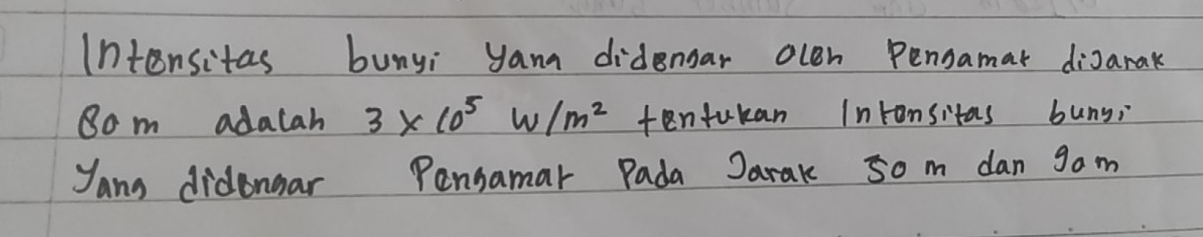 Intensitas bunyi yang didengar oleh Pengamat dijarak
80 m adalah 3 x 10⁵ W/m² tentukan Intensitas bunyi
Yang didengar Pengamat Pada Jarak 50 m dan 90 m